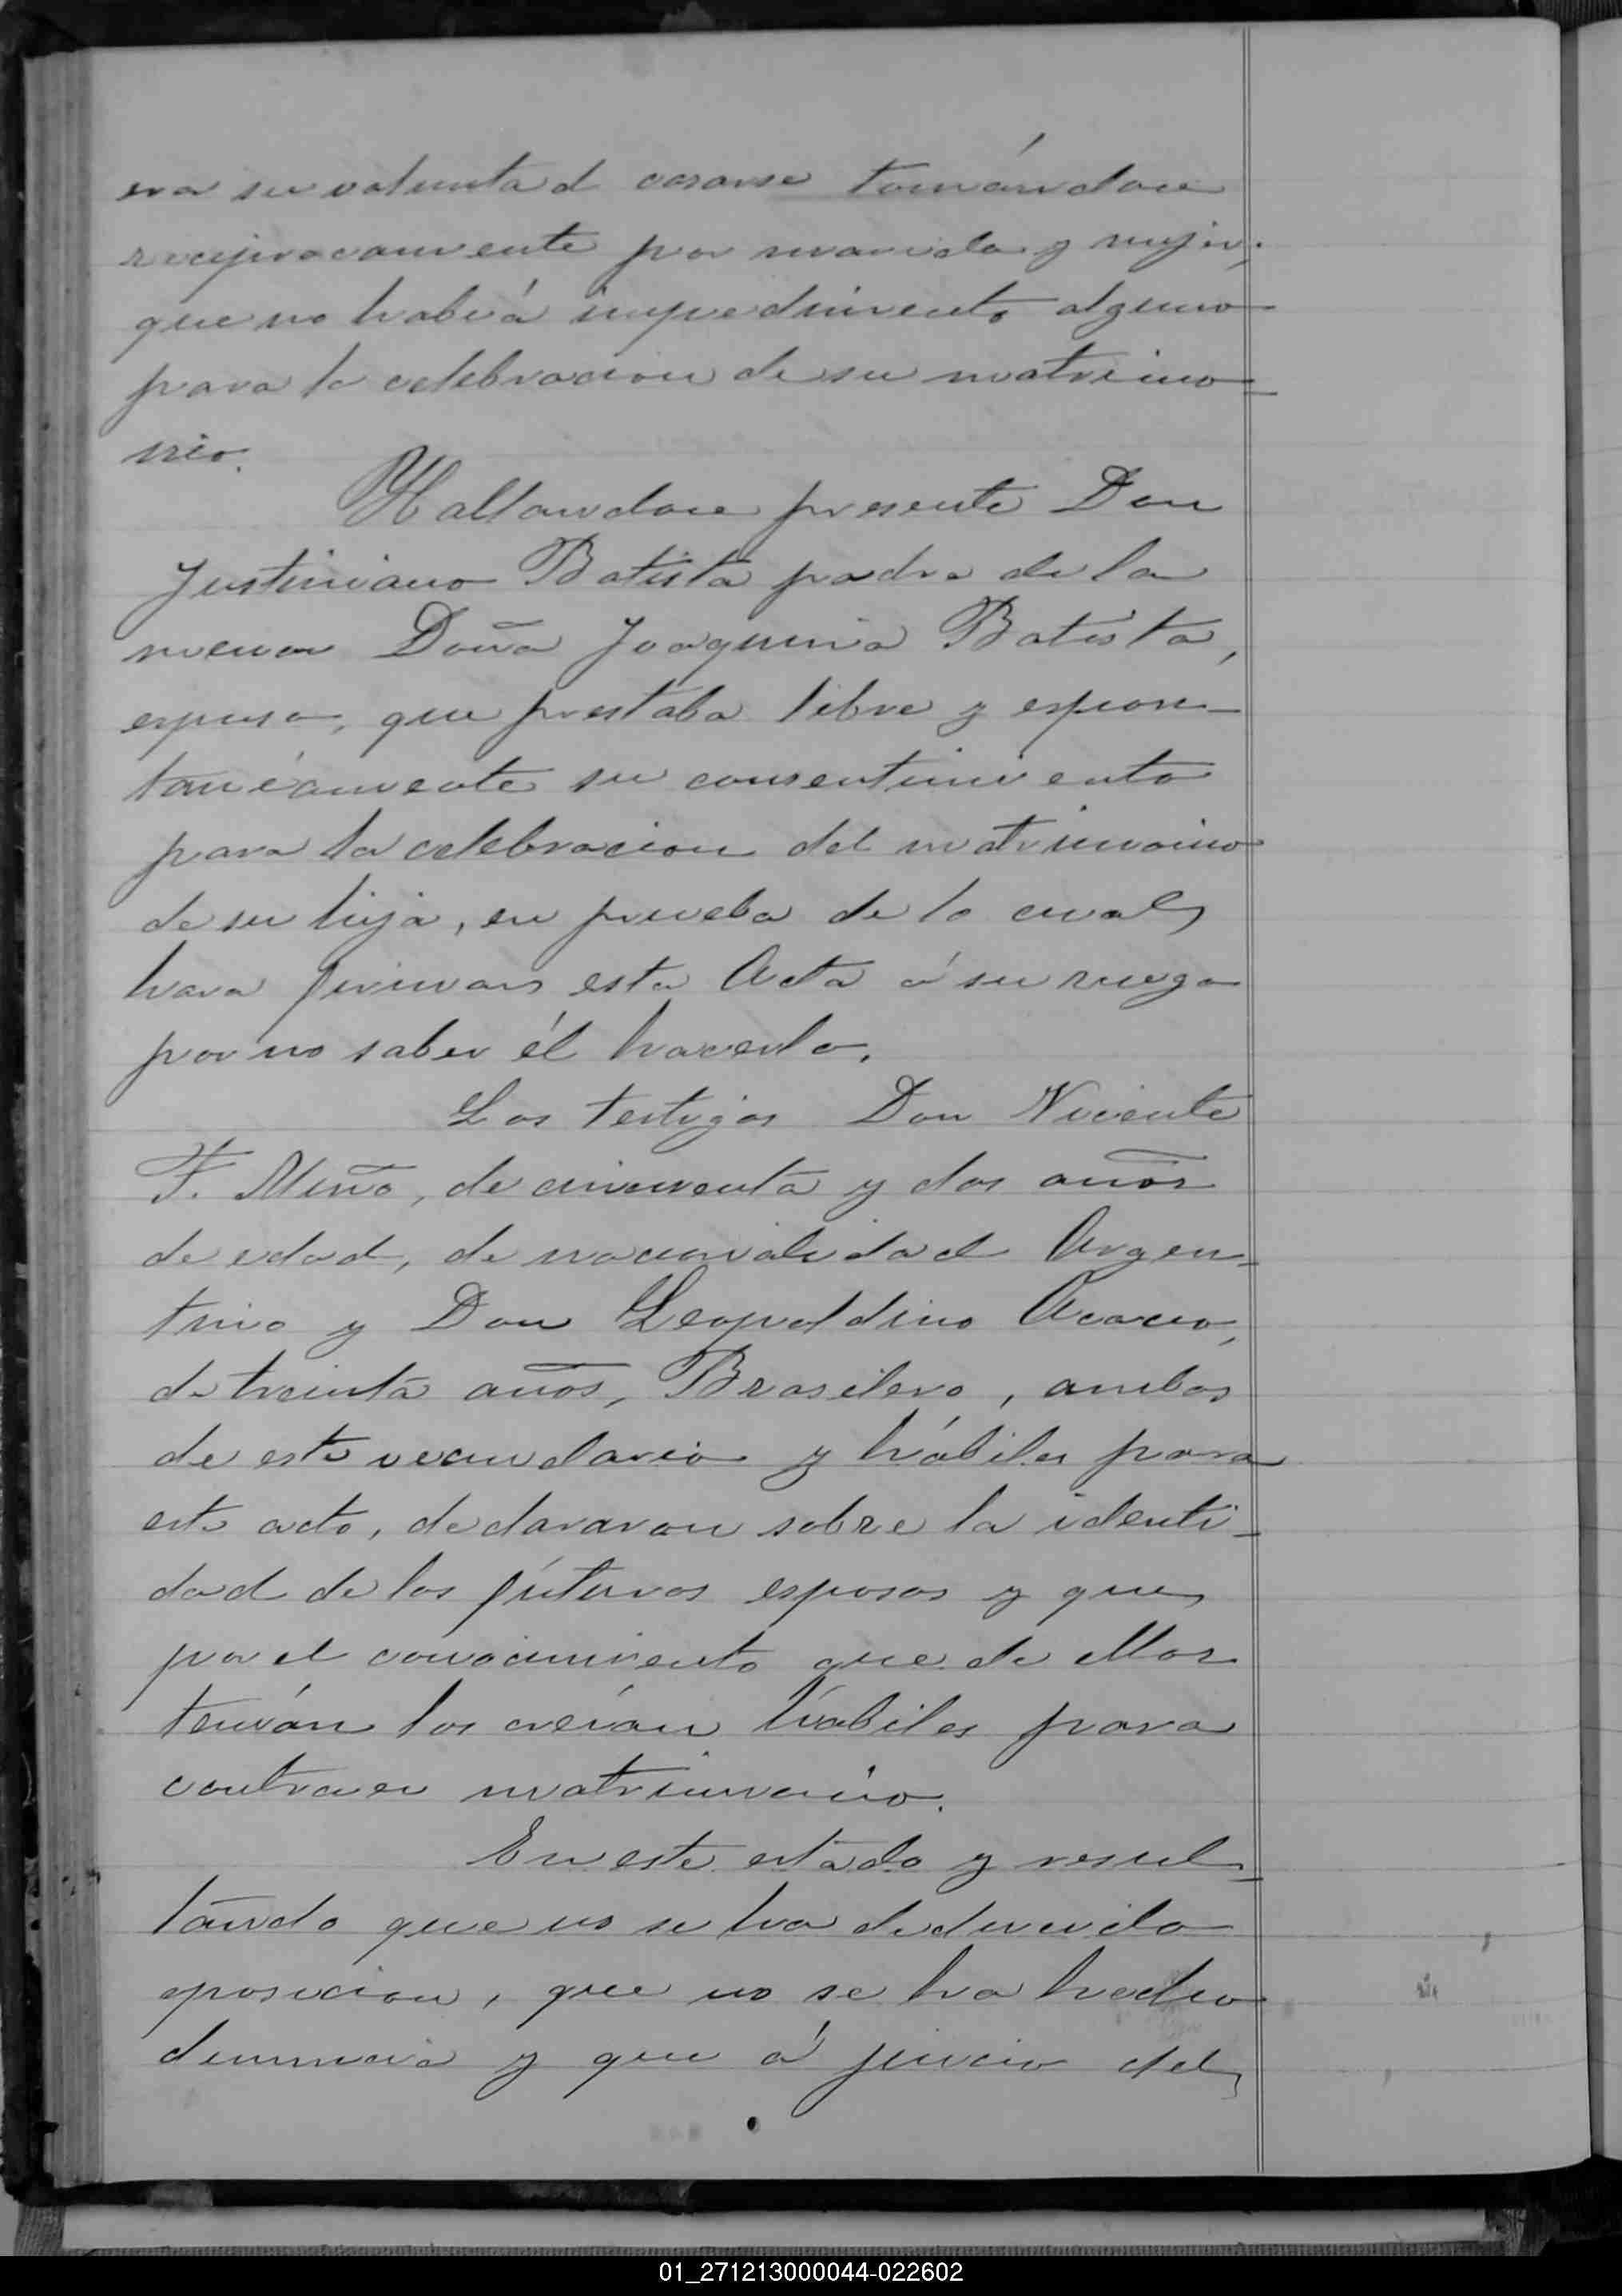 era su voluntad casarse tomándose
reciprocamente por marido y mujer;
que no habiá impedimento alguno
para la celebracion de su matrimo-
nio.
Hallandose presente Don
Justiniano Batista padre de la
menor Doña Joaquina Batista,
expuso, que prestaba libre y espon-
tanéamente su consentimiento
para la celebracion del matrimonio
de su hija, en prueba de lo cual
hara firmar esta Acta á su ruego
por no saber él hacerlo.
Los testigos Don Vicente
F. Miño, de cincuenta y dos años
de edad, de nacionalidad Argen-
tino y Don Leopoldino Acacio,
de treinta años, Brasilero, ambos
de este vecindario y hábiles para
este acto, declararon sobre la identi-
dad de los futuros esposos y que
por el conocimiento que de ellos
tenián los creián hábiles para
contraer matrimonio.
En este estado y resul-
tando que no se ha deducido
oposicion, que no se ha hecho
denuncia y que á juicio del
01_271213000044-022602